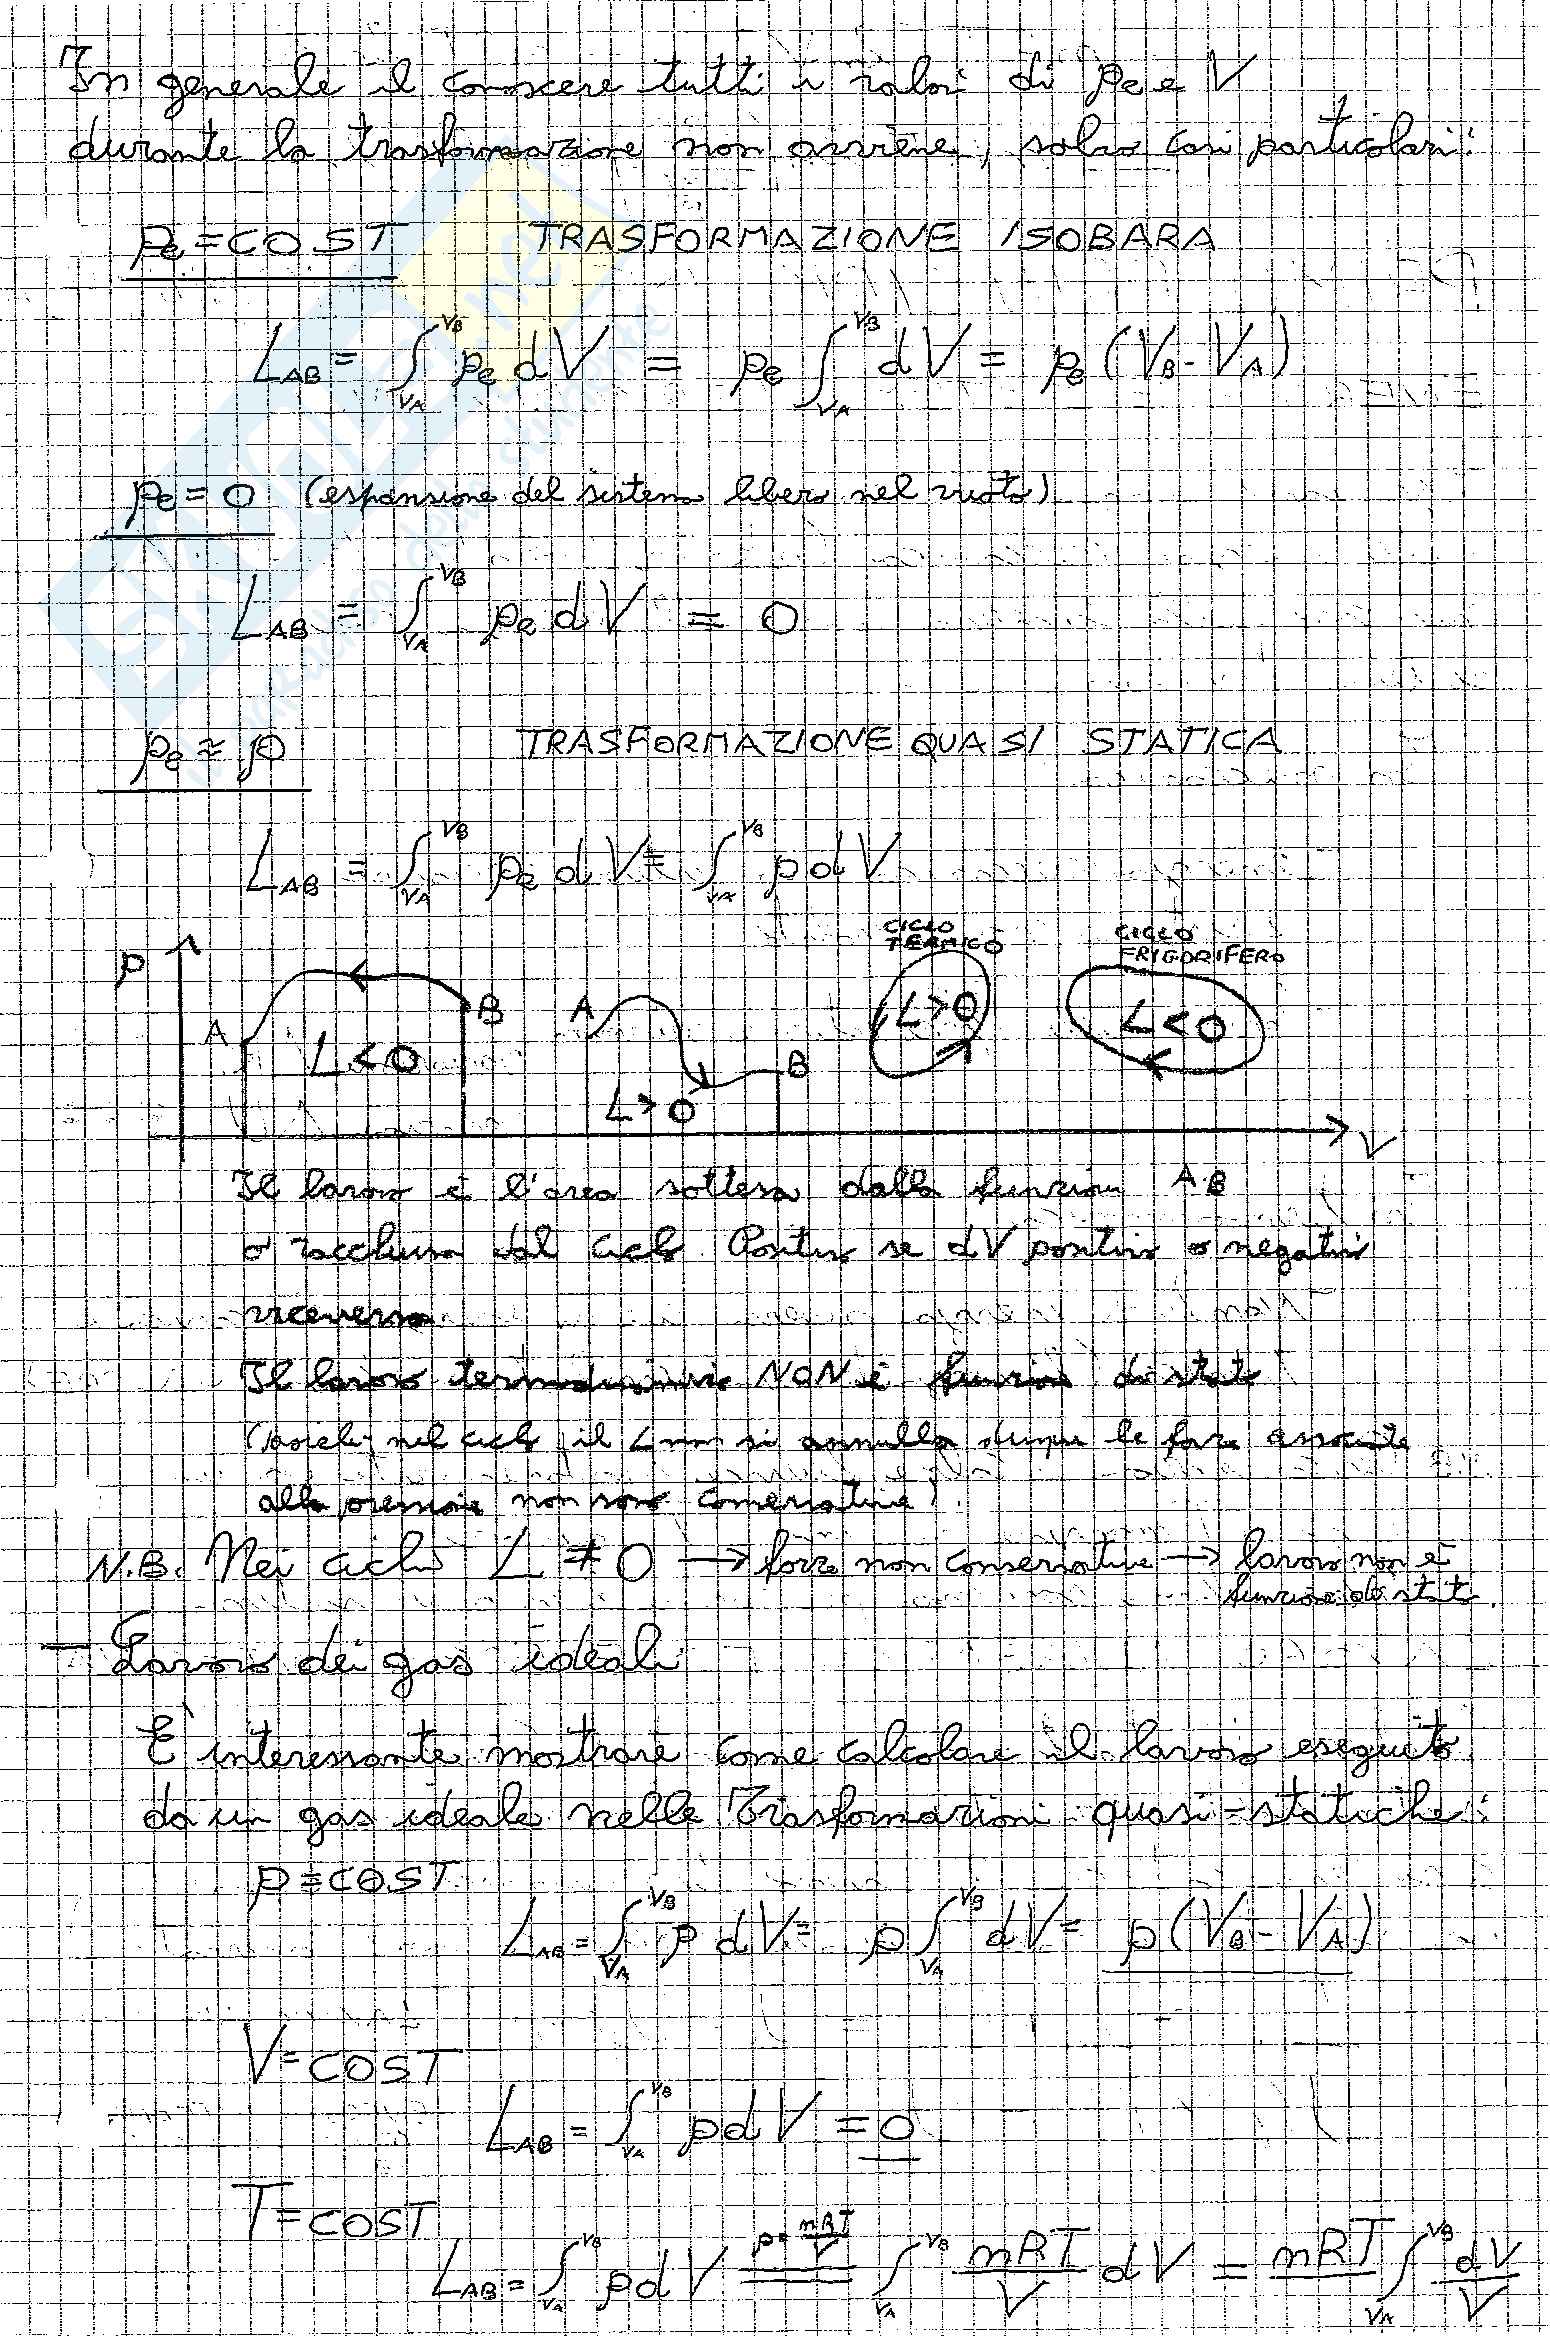 In generale il conoscere tutti i valori di pe e V
durante la trasformazione non avviene, salvo casi particolari:
pe = COST TRASFORMAZIONE ISOBARA
L_AB = ∫_VA^VB pe dV = pe ∫_VA^VB dV = pe (VB - VA)
pe = 0 (espansione del sistema libero nel vuoto)
L_AB = ∫_VA^VB pe dV = 0
pe ≈ p TRASFORMAZIONE QUASI STATICA
L_AB = ∫_VA^VB pe dV = ∫_VA^VB p dV
CICLO TERMICO
CICLO FRIGORIFERO
p
A B A B
L<0 L>0 L>0 L<0
V
Il lavoro è l'area sottesa dalla funzione A B
o racchiusa dal ciclo Positivo se dV positivo o negativo
viceversa
Il lavoro termodinamico NON è funzione di stato
(poiché nel ciclo il L non si annulla dunque le forze associate
alla pressione non sono conservative).
N.B. Nei cicli L ≠ 0 → forze non conservative → lavoro non è
funzione di stato.
- Lavoro dei gas ideali
E' interessante mostrare come calcolare il lavoro eseguito
da un gas ideale nelle Trasformazioni quasi-statiche:
p = COST
L_AB = ∫_VA^VB p dV = p ∫_VA^VB dV = p (VB - VA)
V = COST
L_AB = ∫_VA^VB p dV = 0
T = COST
p = nRT/V
L_AB = ∫_VA^VB p dV = ∫_VA^VB nRT/V dV = nRT ∫_VA^VB dV/V